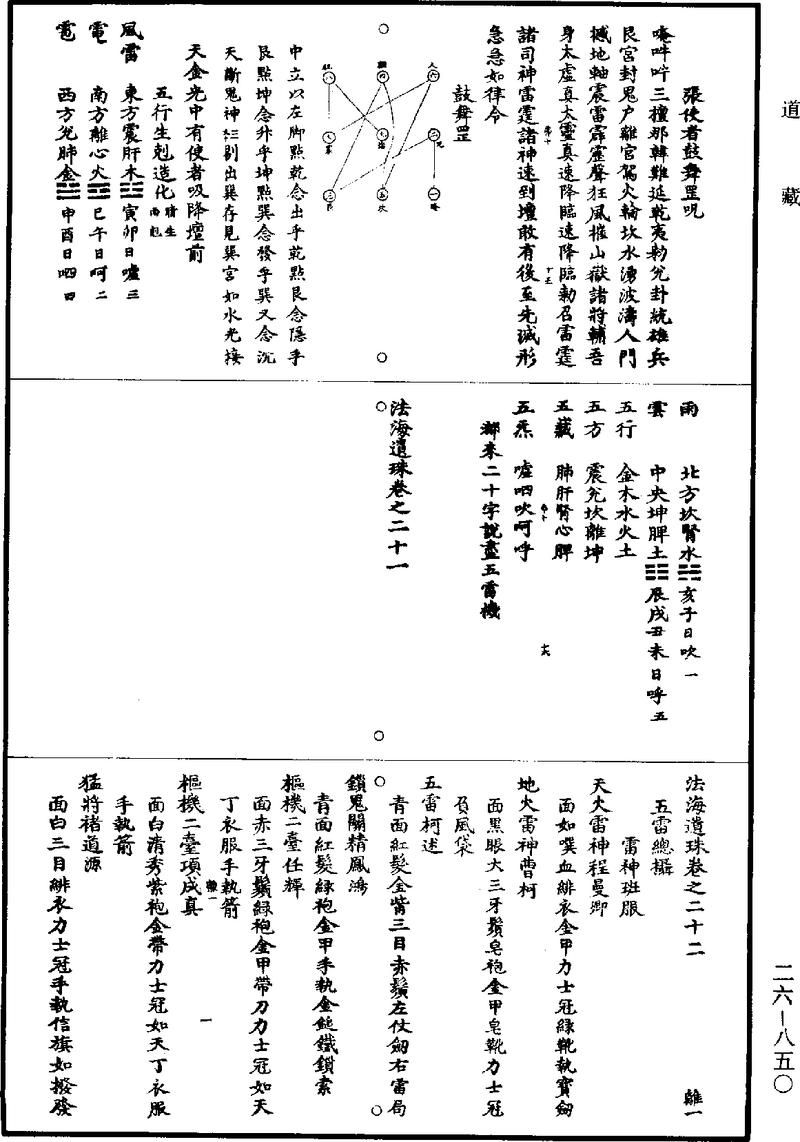 道藏
張使者鼓舞罡咒
唵吽吽三檀那韓難延乾夷勅兌卦統雄兵
艮宮封鬼户離宮駕火輪坎水湧波濤人門
撼地軸震雷霹靂聲狂風摧山嶽諸將輔吾
身太虛真太靈真速降臨速降臨勅召雷霆
諸司神雷霆諸神速到壇敢有後至先滅形
急急如律令
鼓舞罡
中立以左脚點乾念出乎乾點艮念隱乎
艮點坤念升乎坤點巽念發乎巽又念沉
天斷鬼神杧剔出巽存見巽宮如水光接
天金光中有使者吸降壇前
五行生剋造化
風雷 東方震肝木☳寅卯日噓三
電 南方離心火☲巳午日呵二
雹 西方兌肺金☱申酉日呬四
雨 北方坎腎水☵亥子日吹一
雲 中央坤脾土☷辰戌丑未日呼五
五行 金木水火土
五方 震兌坎離坤
五藏 肺肝腎心脾
五炁 噓呬吹呵呼
都來二十字說盡五雷機
法海遺珠卷之二十一
法海遺珠卷之二十二 離一
五雷總攝
雷神班服
天火雷神程曼卿
面如噀血緋衣金甲力士冠綠靴執寶劒
地火雷神曹柯
面黑眼大三牙鬚皂袍金甲皂靴力士冠
負風袋
五雷柯述
青面紅髮金觜三目赤鬚左仗劒右雷局
鎖鬼關精鳳鴻
青面紅髮綠袍金甲手執金鎚鐵鎖索
樞機二臺任輝
面赤三牙鬚綠袍金甲帶刀力士冠如天
丁衣服手執箭
樞機二臺項成真
面白清秀紫袍金帶力士冠如天丁衣服
手執箭
猛將褚道源
面白三目緋衣力士冠手執信旗如撥發
二六—八五〇